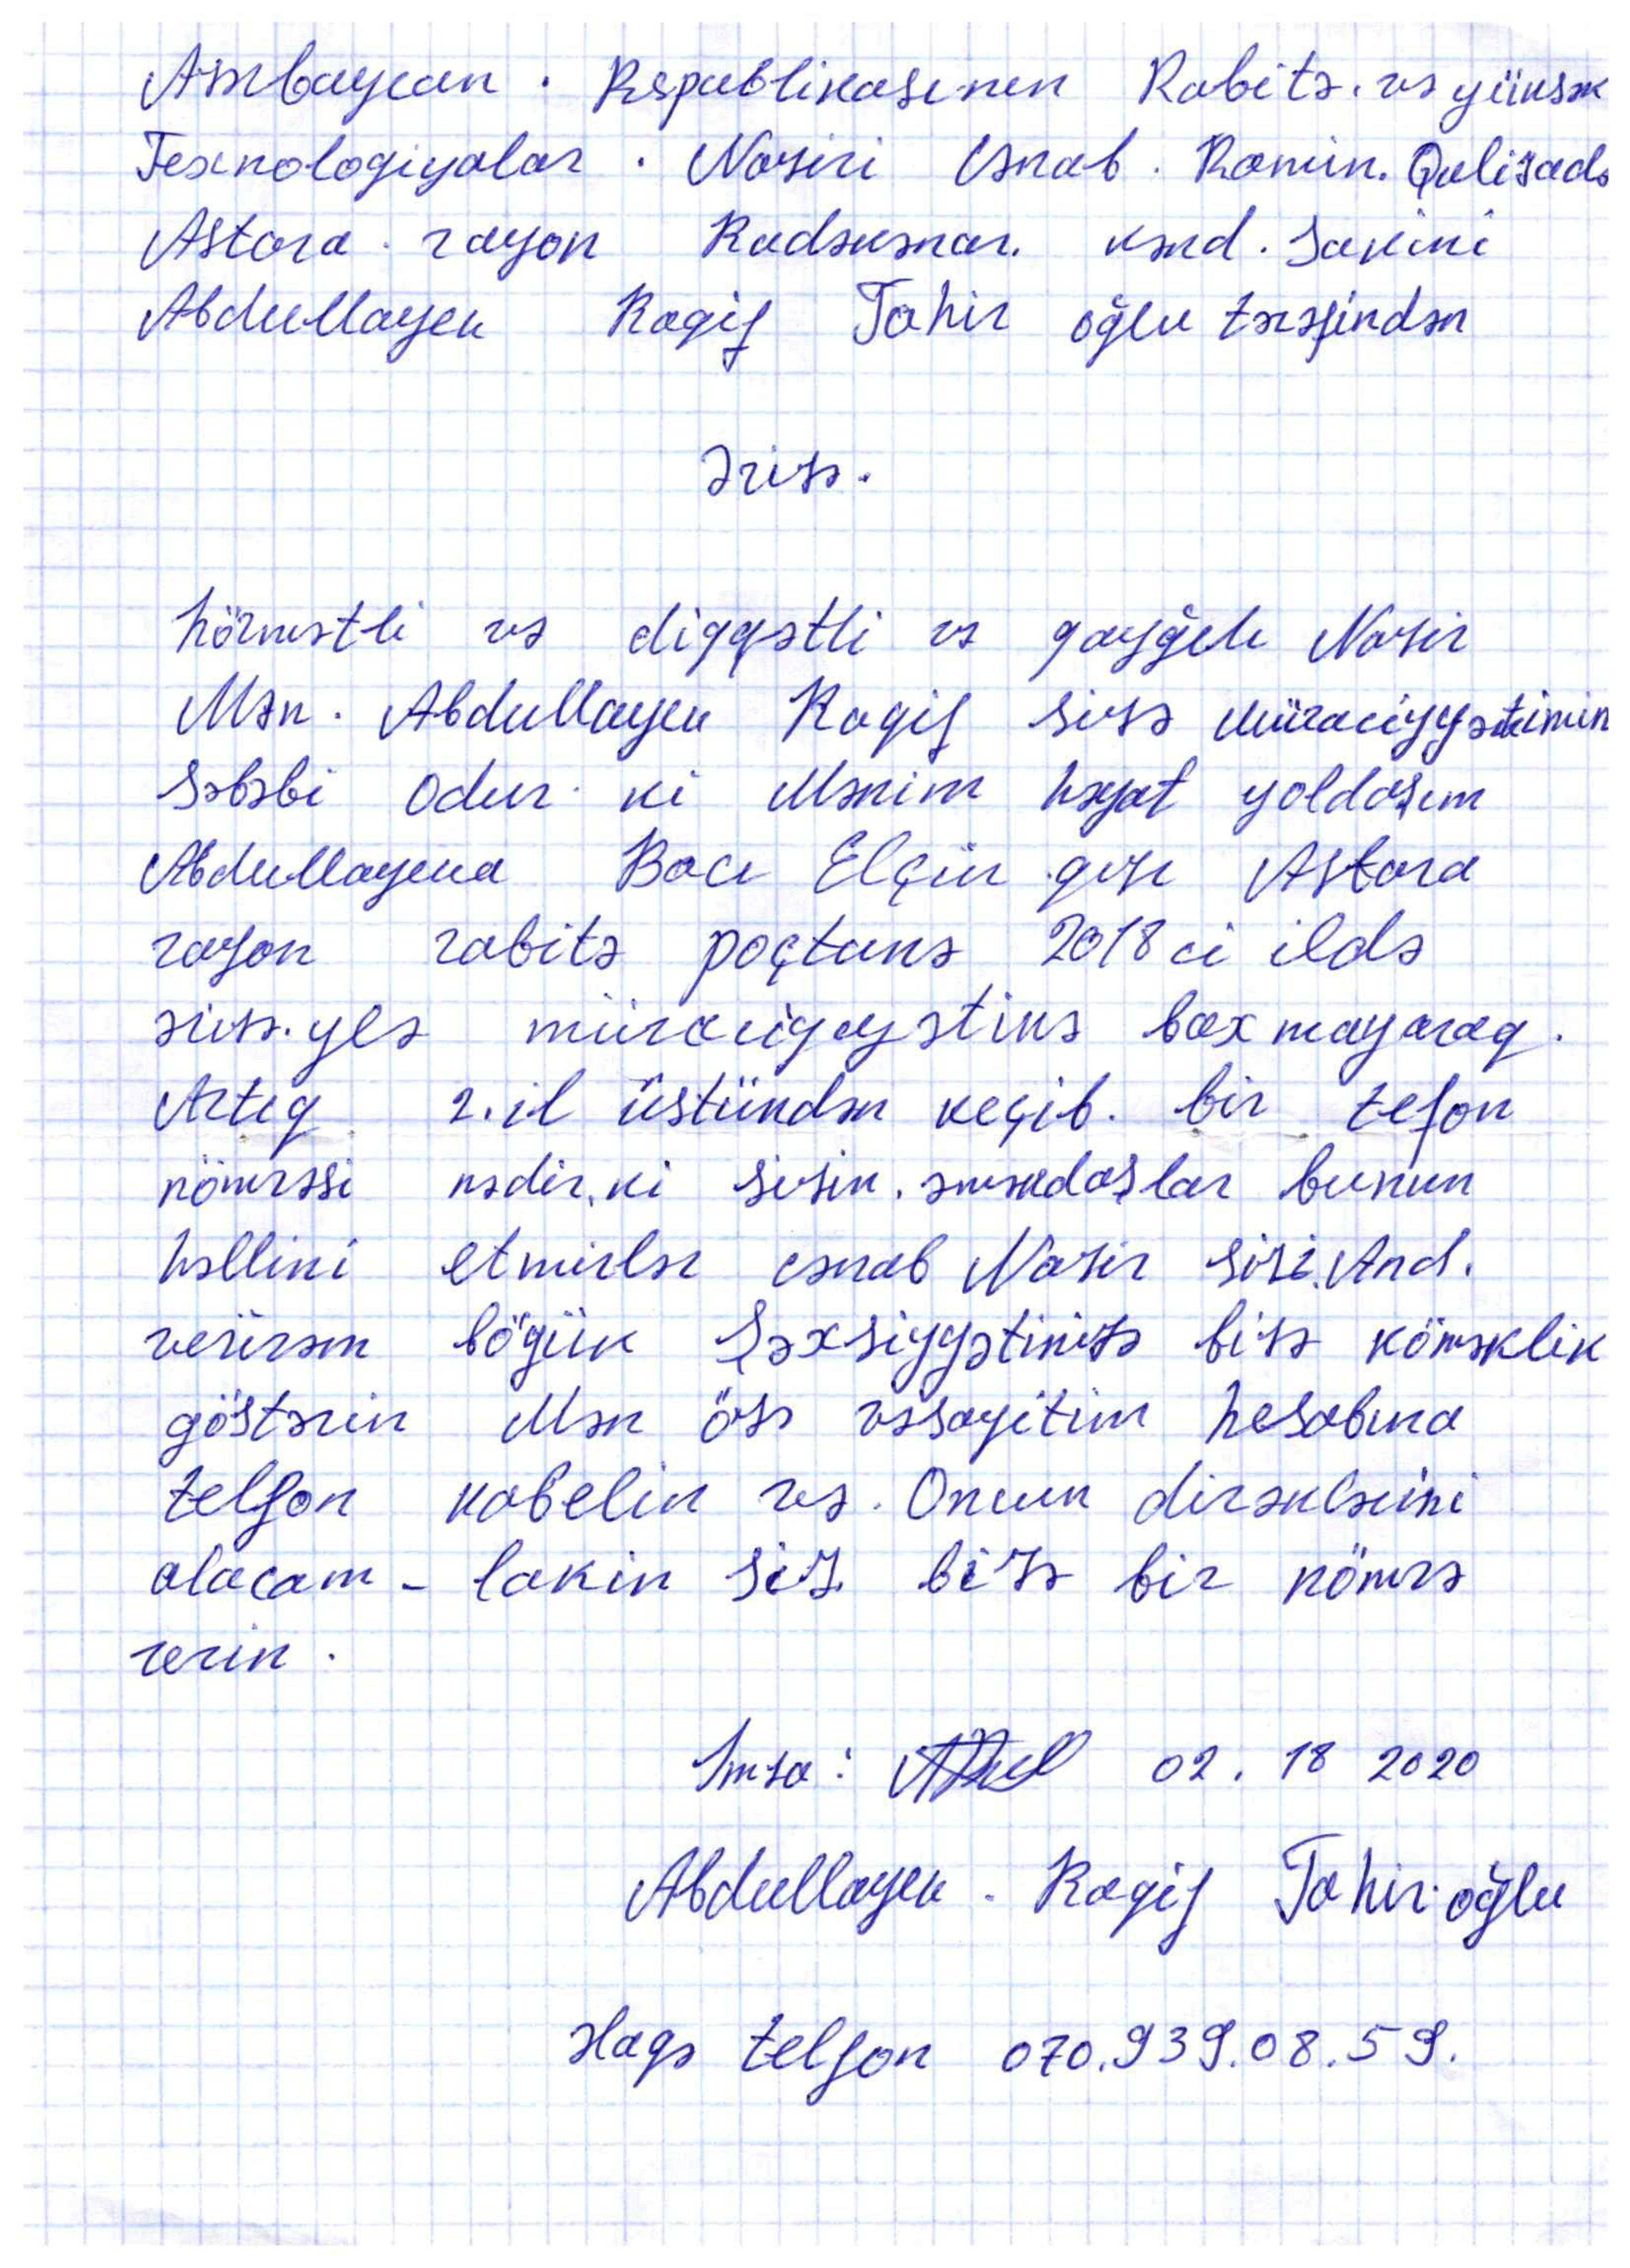 Azərbaycan. Respublikasının Rabitə. və yüksək
Texnologiyalar. Naziri Cənab. Ramin. Quluzadə
Astara. rayon Kadəkənar. kənd. Sakini
Abdullayev Ragif Tahir oğlu tərəfindən
Ərizə.
hörmətli və diqqətli və qayğılı Nazir
Mən. Abdullayev Ragif sizə müraciyyətimin
Səbəbi odur. ki Mənim həyat yoldaşım
Abdullayeva Bacı Elçin qızı Astara
rayon rabitə poçtuna 2018 ci ildə
ərizə. ylə müraciyyətinə baxmayaraq.
Artıq 2. il üstündən keçib. bir tefon
nömrəsi nədir. ki sizin. əməkdaşlar bunun
həllini etmirlər cənab Nazir sizi. And.
verirəm böyük Şəxsiyyətinizə bizə köməklik
göstərin Mən özə vəsayitim hesabına
telfon kabelin və. Onun dirəkləini
alacam - lakin siz. bizə bir nömrə
verin.
İmza: 02. 18 2020
Abdullayev. Ragif Tahir. oğlu
Əlaqə telfon 070.939.08.59.